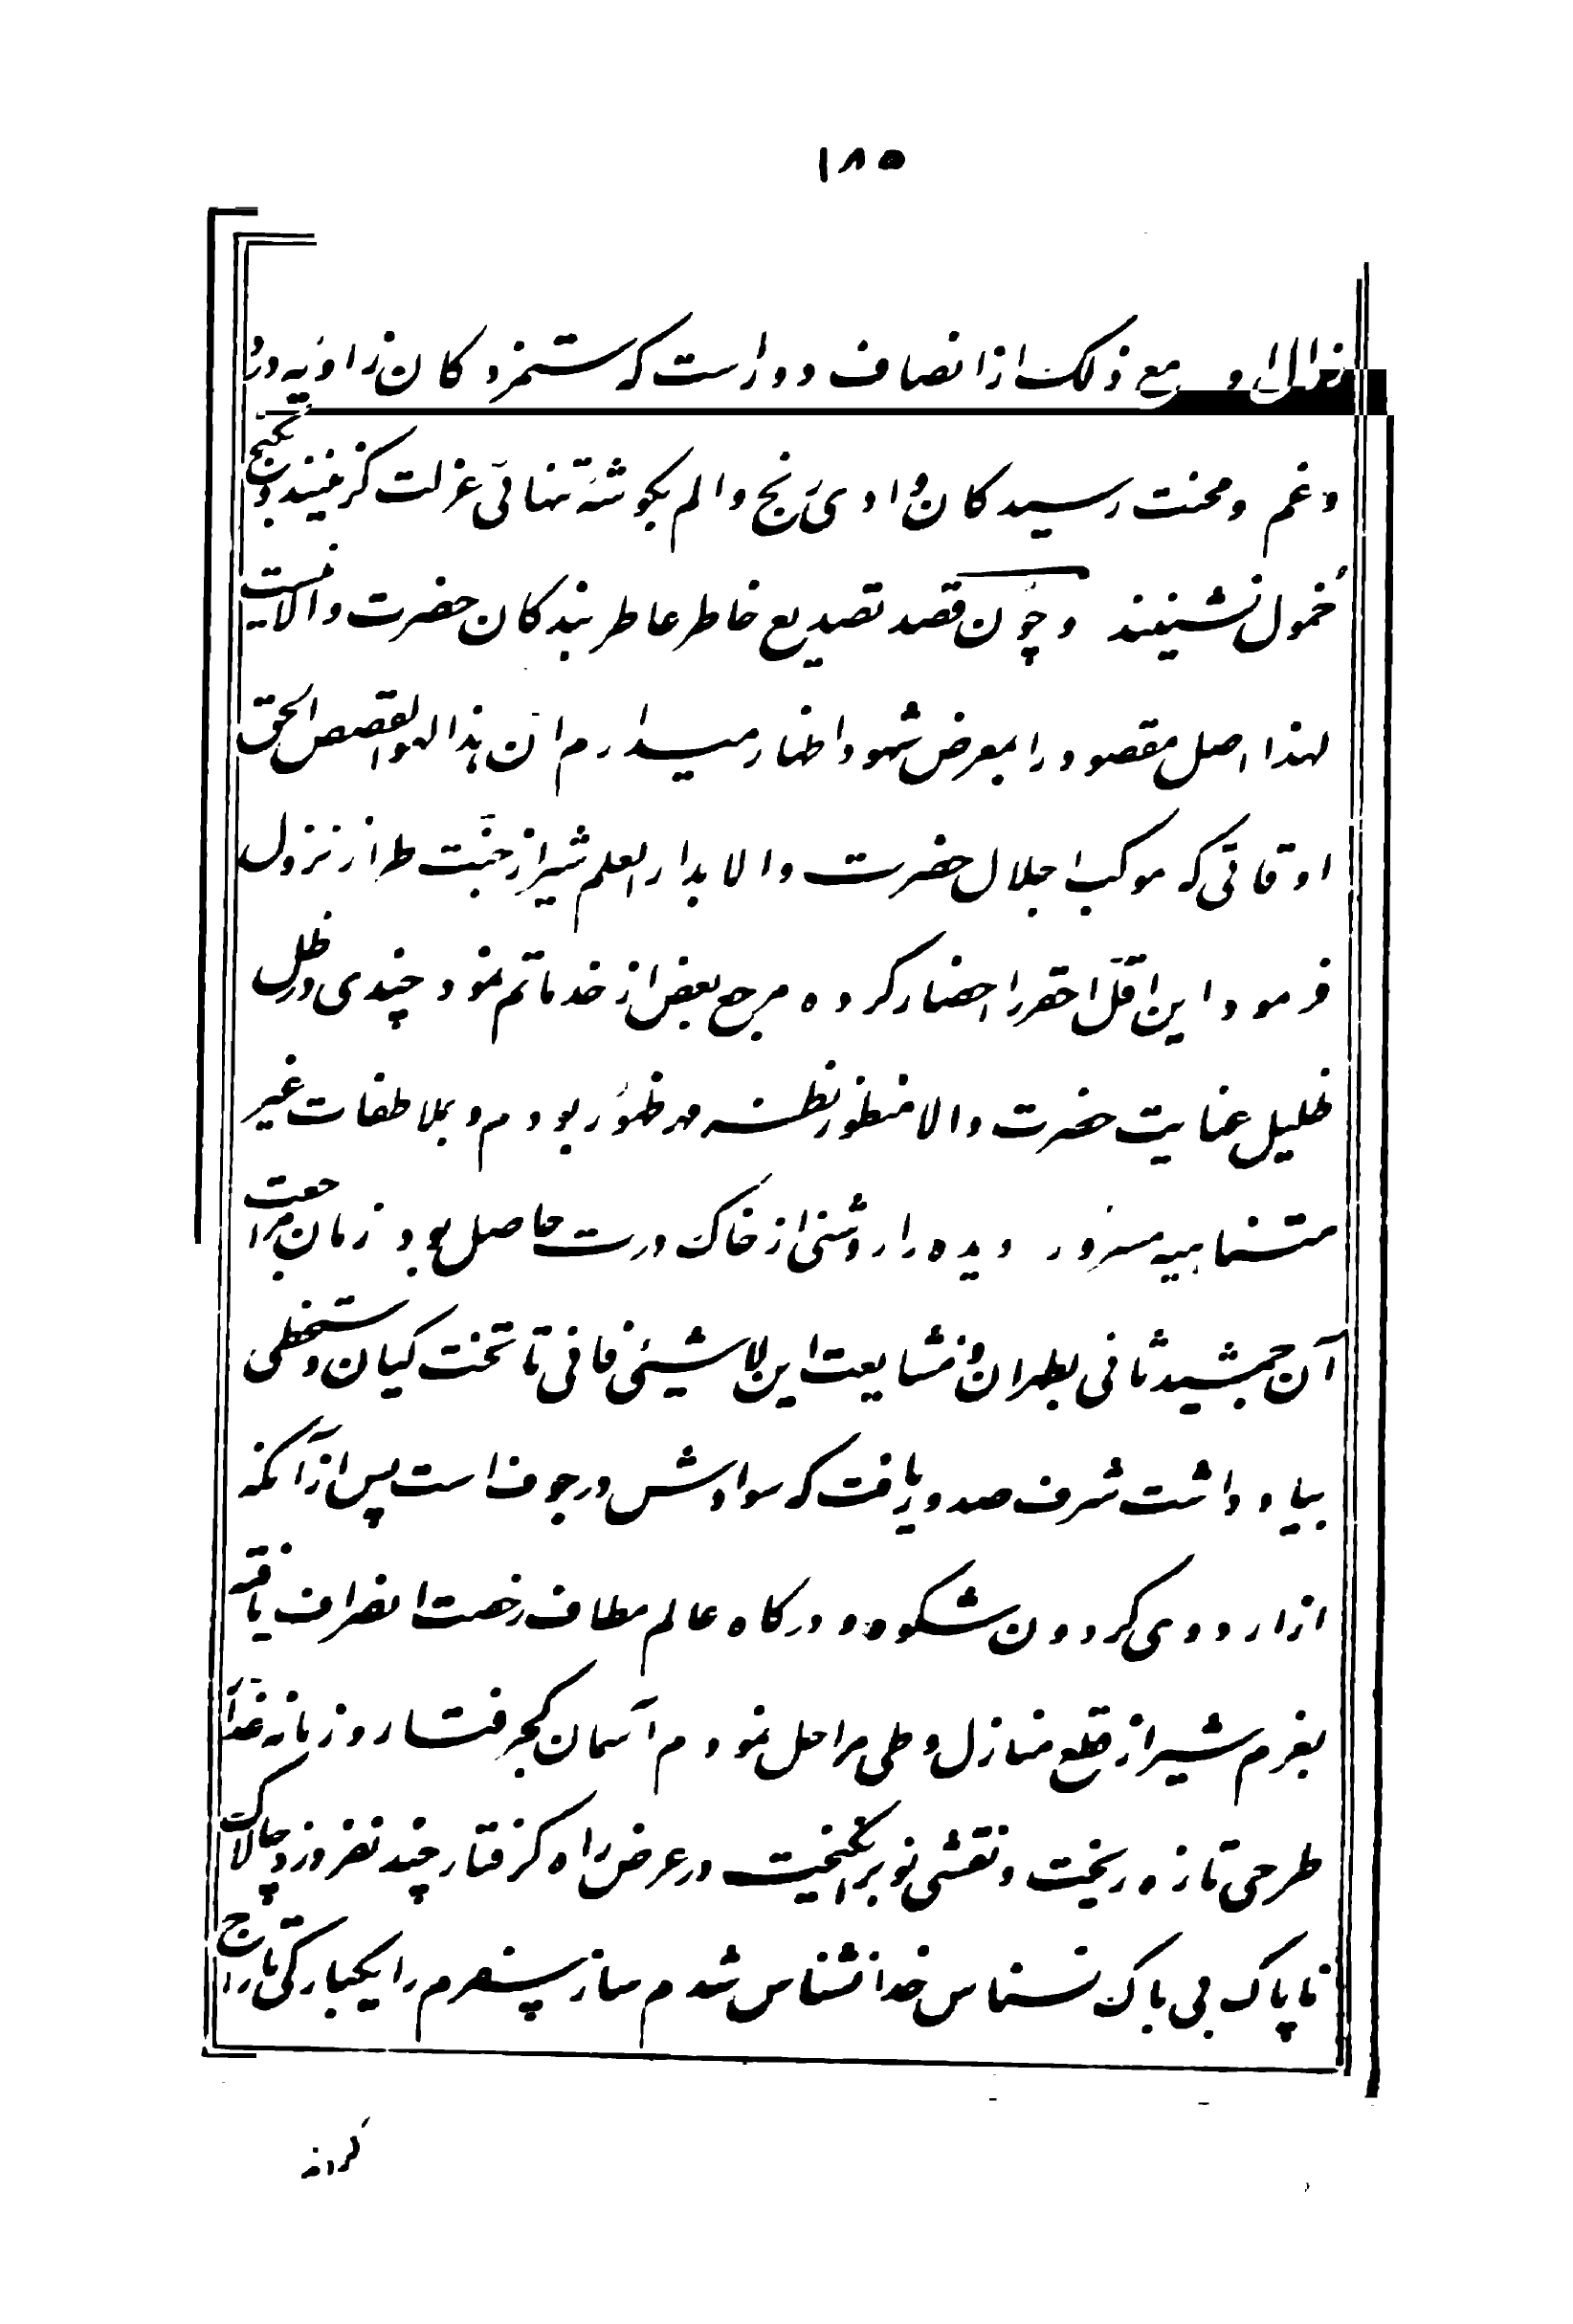 ۱۸۵
و مع ذلک از انصاف دور است که ستمزدکان زاویه درد
و غم و محنت رسیدکان وادی رنج و الم بکوشهٔ تنهائی عزلت کزینند و بکنج
خمول نشینند و چون قصد تصدیع خاطر عاطر بندکان حضرت والا نیست
لهذا اصل مقصود را بمعرض شهود اظهار میدارم ان هذا لهو القصص الحق
اوقاتی که موکب اجلال حضرت والا بدار العلم شیراز جنّت طراز نزول
فرمود این اقلّ احقر را احضار کرده مرجع بعض از خدماتم نمود چندی در ظل
ظلیل عنایت حضرت والا منظور نظر بودم و بملاطفات غیر
متناهیه مسرور دیده را روشنی از خاک درت حاصل بود زمان مراجعت
آن جمشید ثانی بطهران و مشایعت این لاشیئی فانی تا تخت کیان دستخطی
بیاد داشت شرف صدور یافت که سوادش در جوف است پس از آنکه
از اردوی کردون شکوه و درکاه عالم مطاف رخصت انصراف یافته
بعزم شیراز قطع منازل و طی مراحل نمودم آسمان کجرفتار و زمانه غدّار
طرحی تازه ریخت و نقشی نو برانکیخت در عرض راه کرفتار چند نفر دزد چالاک
ناپاک بی باک نسناس خدانشناس شدم ساز سفرم را یکبارکی تاراج
کردند